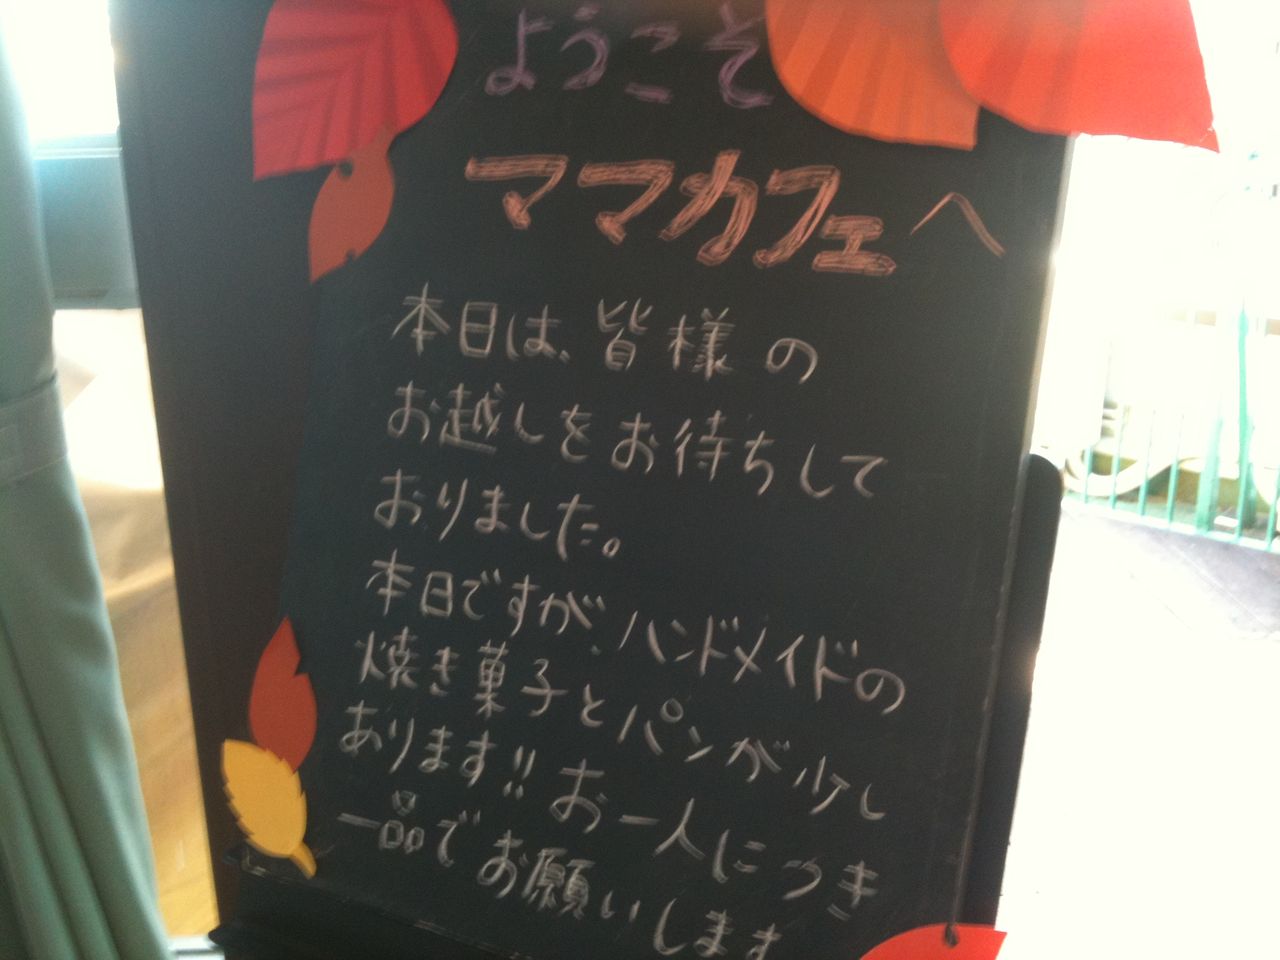 ようこそ
ママカフェへ
本日は、皆様の
お越しをお待ちして
おりました。
本日ですが、ハンドメイドの
焼き菓子とパンが少し
あります!! お一人につき
一品でお願いします